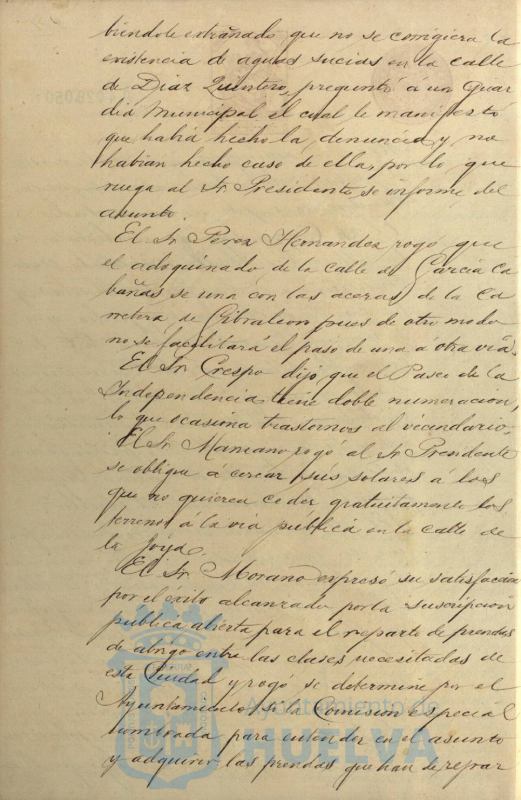 biendole extrañado que no se corrigiera la
existencia de aguas sucias en la calle
de Diaz Quintero, preguntó á un Guar
dia Municipal el cual le manifestó
que habia hecho la denuncia y no
habian hecho caso de ella, por lo que
ruega al Sr. Presidente se informe del
asunto.
El Sr. Perez Hernandez rogó que
el adoquinado de la calle de Garcia Ca
bañas se una con las aceras de la Ca
rretera de Gibraleon pues de otro modo
no se facilitará el paso de una á otra via.
El Sr. Crespo dijo, que el Paseo de la
Independencia tiene doble numeracion,
lo que ocasiona trastornos al vecindario.
El Sr. Manzano rogó al Sr. Presidente
se obligue á cercar sus solares á los
que no quieren ceder gratuitamente los
terrenos á la via pública en la calle de
la Joya.
El Sr. Morano expresó su satisfaccion
por el exito alcanzado por la suscripcion
publica abierta para el reparto de prendas
de abrigo entre las clases necesitadas de
esta Ciudad y rogó se determine por el
Ayuntamiento si la Comision especial
nombrada para entender en el asunto
y adquirir las prendas que han de repar
Ayuntamiento de
HUELVA